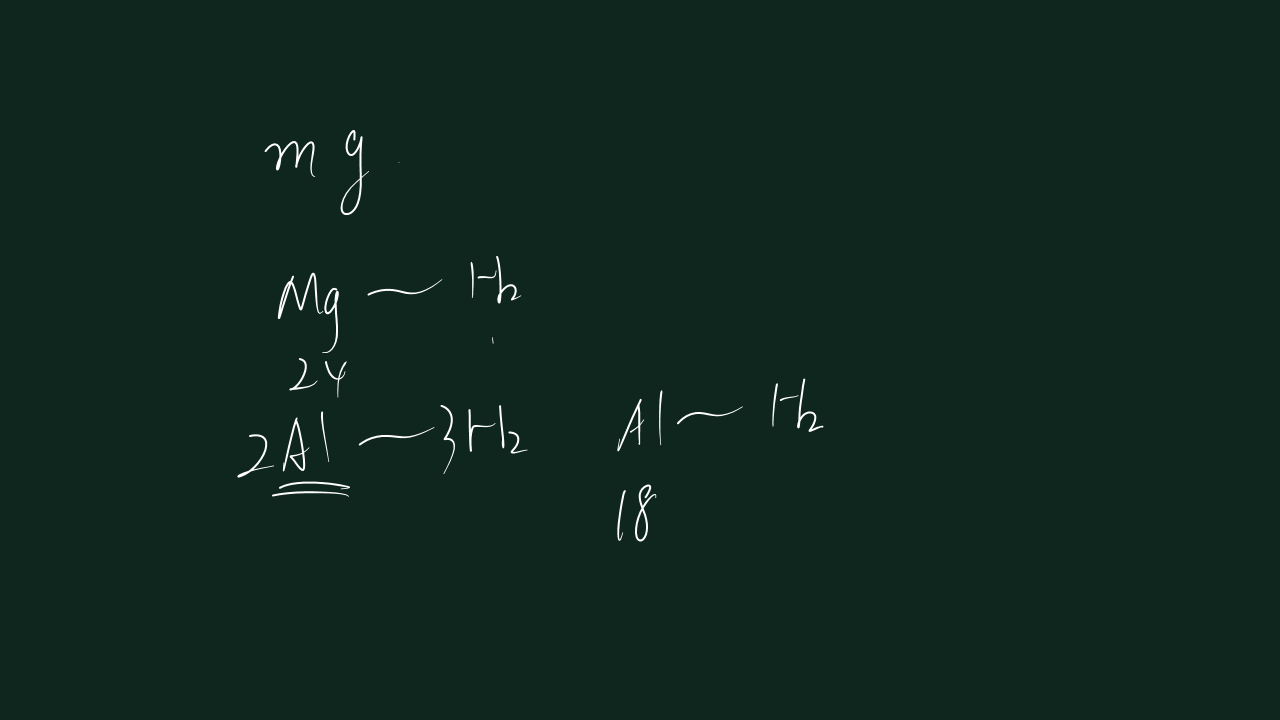 m g
Mg ~ H₂
24
2Al ~ 3H₂
Al ~ H₂
18